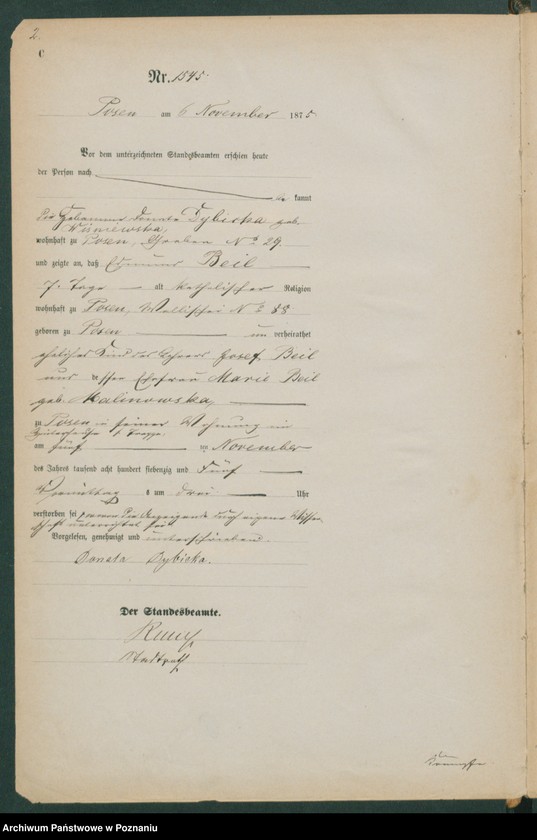 2.
C
Nr. 1545
Posen am 6 November 1875
Vor dem unterzeichneten Standesbeamten erschien heute
der Person nach
be kannt
Die Hebamme Donata Dybicka geb.
Wisniewska,
wohnhaft zu Posen, Graben No 29.
und zeigte an, daß Edmund Beil
7. Tage alt katholischer Religion
wohnhaft zu Posen, Wallischei No 88
geboren zu Posen un verheirathet
eheliches Kind des Josef Beil
und dessen Ehefrau Marie Beil
geb. Malinowska,
zu Posen in seiner Wohnung
am fünf ten November
des Jahres tausend acht hundert siebenzig und Fünf
Nachmittag s um drei Uhr
verstorben sei
Vorgelesen, genehmigt und unterschrieben.
Donata Dybicka.
Der Standesbeamte.
Stadtrath
Archiwum Państwowe w Poznaniu